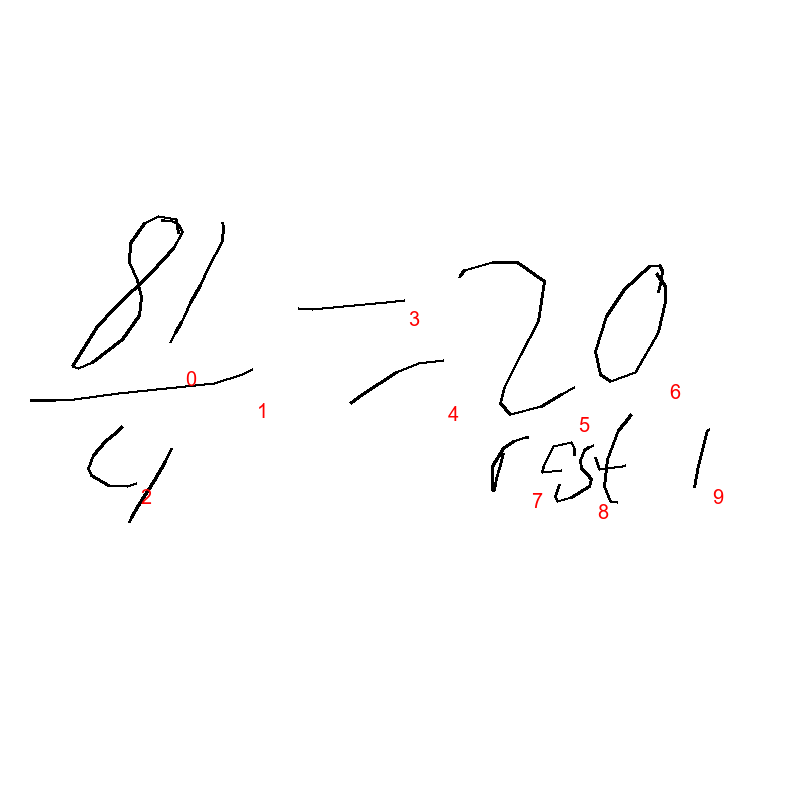 81/4 = 20
rest 1
0 1 2 3 4 5 6 7 8 9